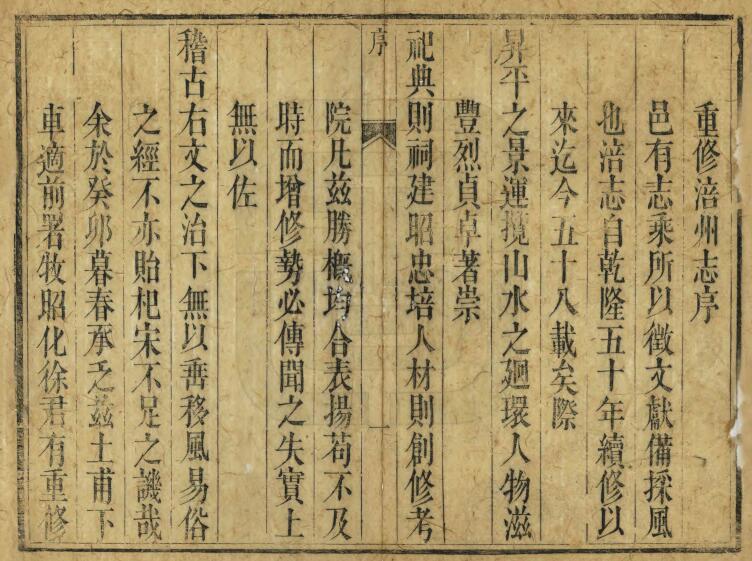 重修涪州志序
邑有志乘所以徵文獻備採風
也涪志自乾隆五十年續修以
來迄今五十八載矣際
昇平之景運攬山水之廻環人物滋
豐烈貞卓著崇
祀典則祠建昭忠培人材則創修考
序
一
院凡茲勝概均合表揚苟不及
時而增修勢必傳聞之失實上
無以佐
稽古右文之治下無以垂移風易俗
之經不亦貽杞宋不足之譏哉
余於癸卯暮春承乏茲土甫下
車適前署牧昭化徐君有重修